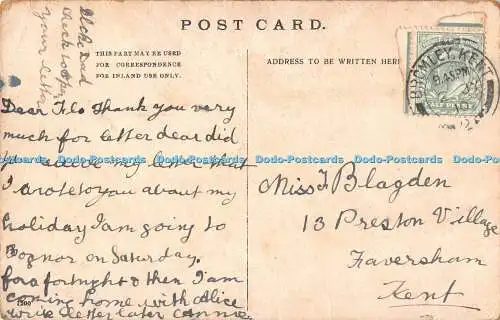 POST CARD.
THIS PART MAY BE USED
FOR CORRESPONDENCE
FOR INLAND USE ONLY.
ADDRESS TO BE WRITTEN HERE
BROMLEY, KENT
8.45 PM
HALFPENNY
your letter
Dear Flo Thank you very
much for letter dear did
my letter that
I wrote to you about my
holiday I am going to
Bognor on Saturday.
for a fortnight & then I am
coming home with Alice
write letter later Annie
Miss F Blagden
13 Preston Village
Faversham
Kent
Dodo-Postcards Dodo-Postcards Dodo-Postcards Dodo-Postcards Dodo-Postcards Dodo-Postcards